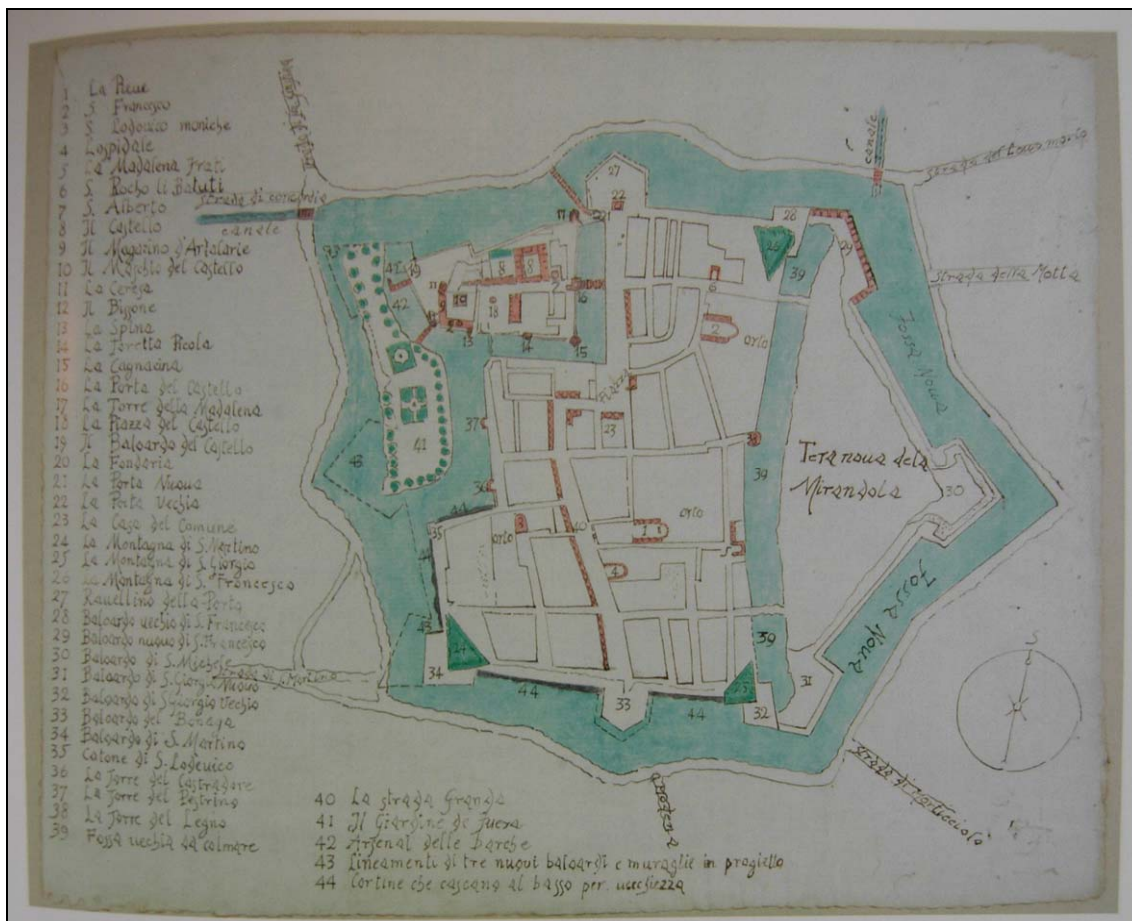 1 La Pieue
2 S. Francesco
3 S. Lodouico moniche
4 Lospidale
5 La Madalena Frati
6 S. Rocho li Batuti
7 S. Alberto
8 Il Castello
9 Il Magazino d'Artalarie
10 Il Maschio del Castello
11 La Ceresa
12 Il Bissone
13 La Spina
14 La Toretta Picola
15 La Cagnacina
16 La Porta del Castello
17 La Torre della Madalena
18 La Piazza del Castello
19 Il Baloardo del Castello
20 La Fondaria
21 La Porta Nuoua
22 La Porta Vechia
23 La Casa del Comune
24 La Montagna di S. Martino
25 La Montagna di S. Giorgio
26 La Montagna di S. Francesco
27 Rauellino della Porta
28 Baloardo uechio di S. Francesco
29 Baloardo nuouo di S. Francesco
30 Baloardo di S. Michele
31 Baloardo di S. Giorgio Nuouo
32 Baloardo di S. Giorgio Vechio
33 Baloardo del Bonaga
34 Baloardo di S. Martino
35 Catone di S. Lodouico
36 La Torre del Castradore
37 La Torre del Pistrino
38 La Torre del Legno
39 Fossa uechia da colmare
40 La strada Granda
41 Il Giardino de fuora
42 Arsenal delle Barche
43 Lineamenti di tre nuoui baloardi e muraglie in progietto
44 Cortine che cascano al basso per uecchiezza
strada di concordia
canale
canale
strada della Motta
Fossa Noua
Teranoua dela
Mirandola
Fossa Noua
orto
orto
orto
Piazza
strada di S. Martino
Modena
S
27
22
17
28
26
29
39
43
42
19
42
8
8
11
10
18
16
13
14
15
6
2
23
37
41
43
36
44
35
3
40
1
4
39
30
34
24
44
33
44
25
32
31
39